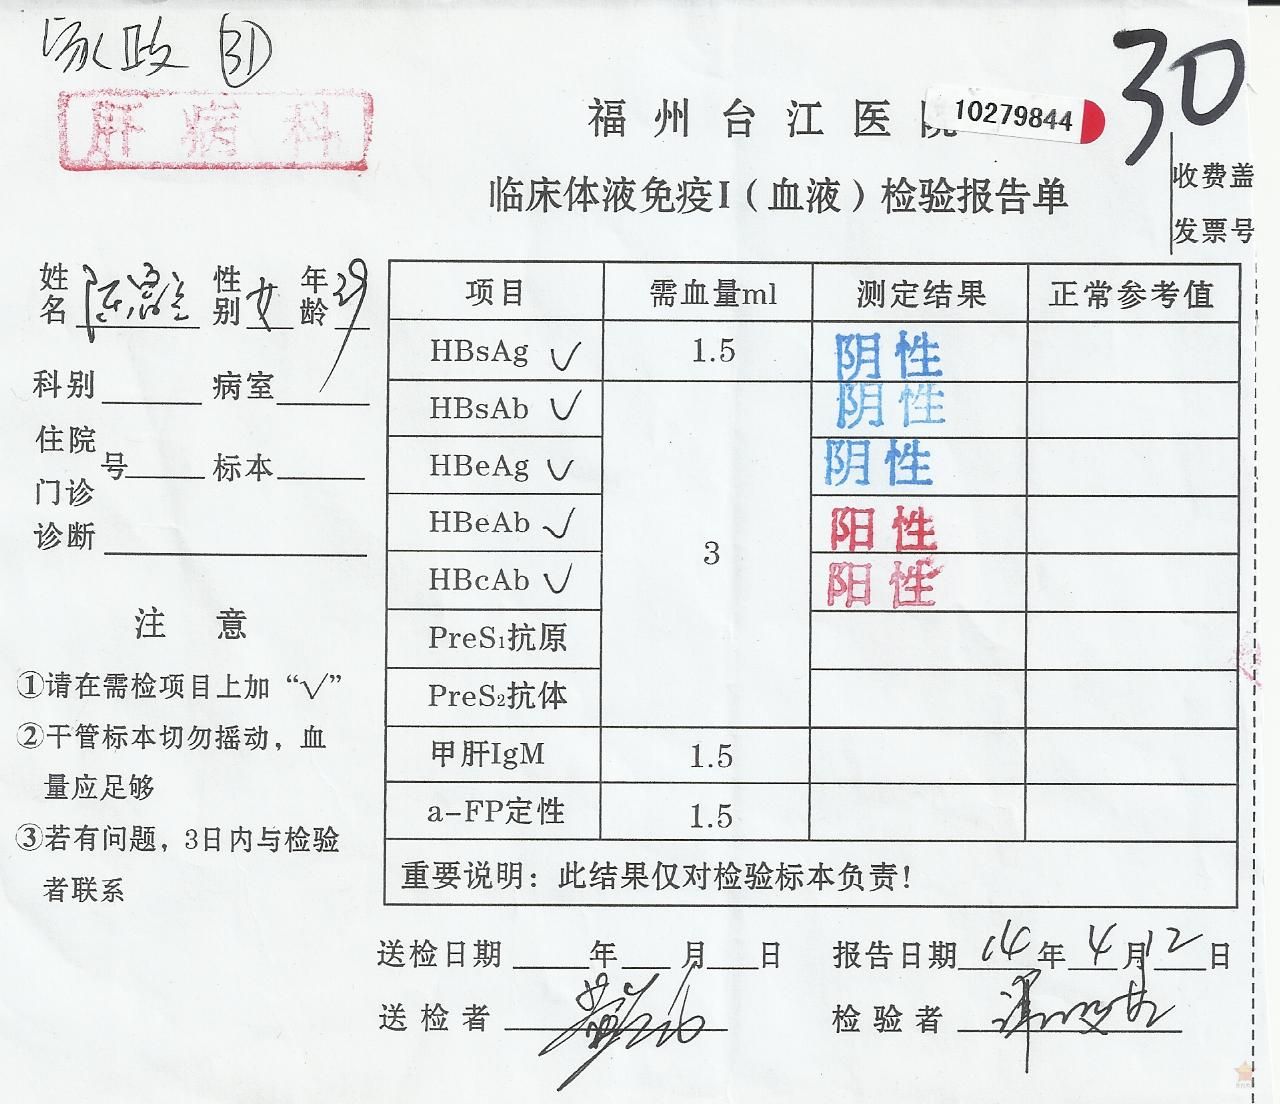 家政 31
肝病科
30
福州台江医院
10279844
临床体液免疫I（血液）检验报告单
收费盖
发票号
姓名 陈 性别 女 年龄 39
科别 病室
住院
门诊 号 标本
诊断
注 意
①请在需检项目上加“√”
②干管标本切勿摇动，血
量应足够
③若有问题，3日内与检验
者联系
项目 需血量ml 测定结果 正常参考值
HBsAg √ 1.5 阴性
HBsAb √ 3 阴性
HBeAg √ 阴性
HBeAb √ 阳性
HBcAb √ 阳性
PreS1抗原
PreS2抗体
甲肝IgM 1.5
a-FP定性 1.5
重要说明：此结果仅对检验标本负责！
送检日期 年 月 日 报告日期 14 年 4 月 12 日
送检者 检验者